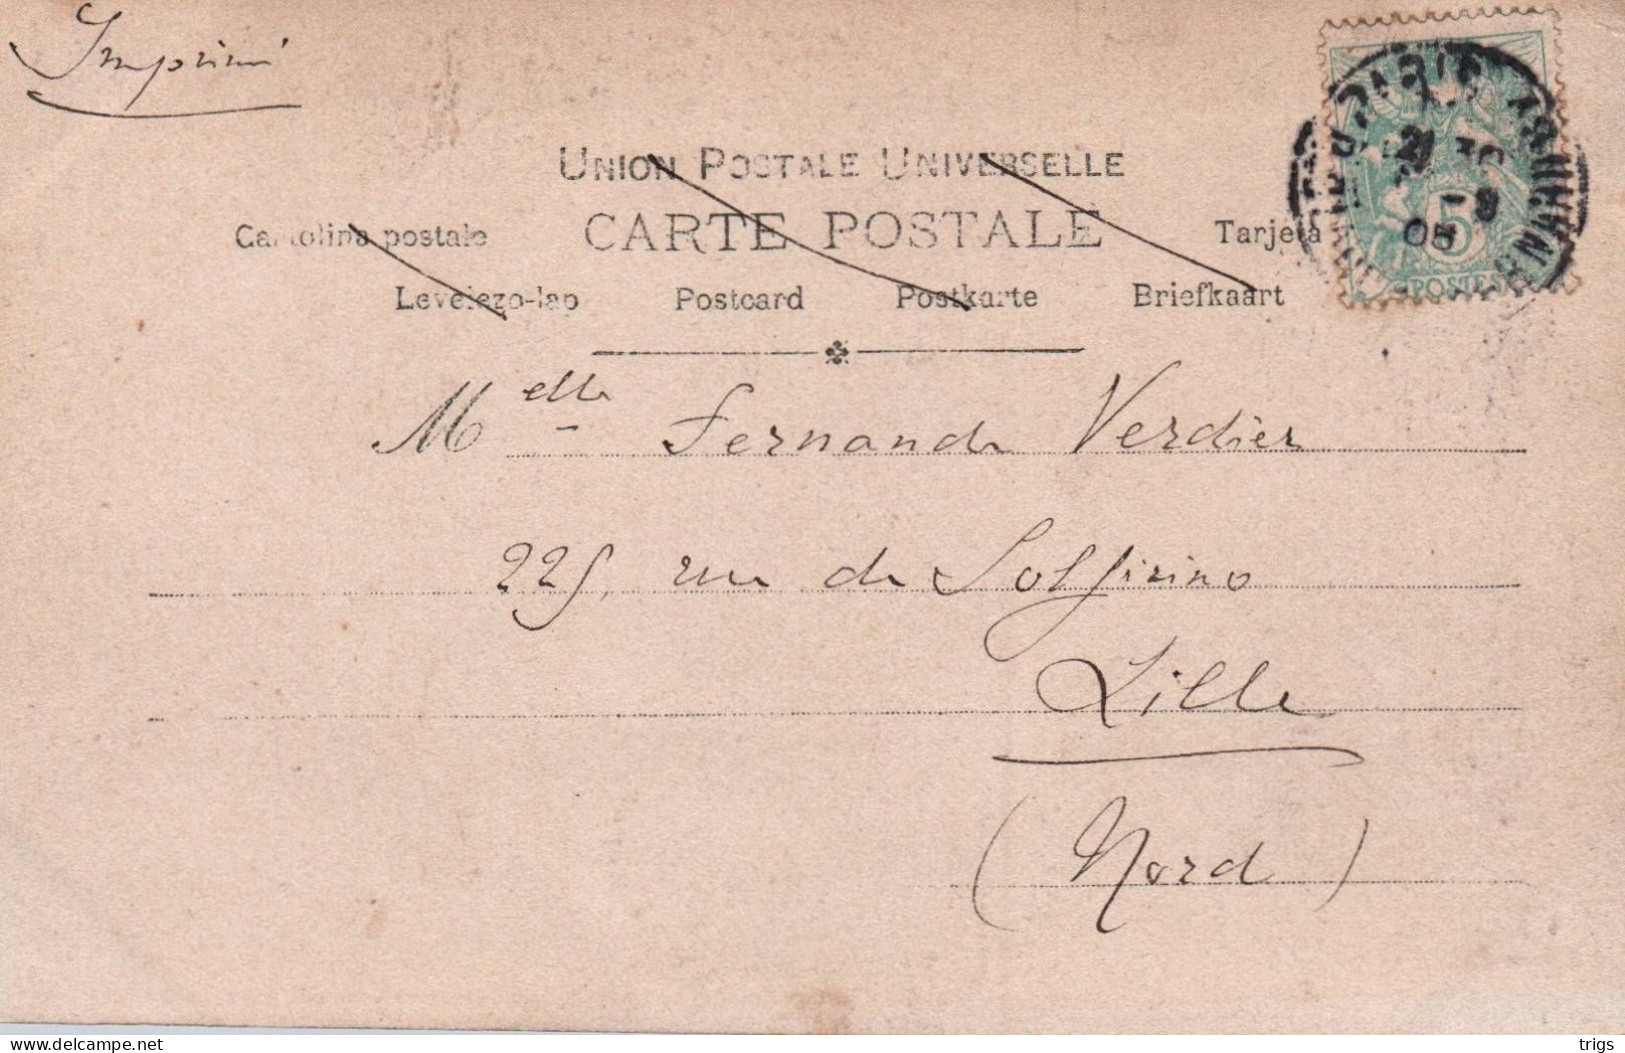 Imprimé
UNION POSTALE UNIVERSELLE
Cartolina postale CARTE POSTALE Tarjeta
Levelezo-lap Postcard Postkarte Briefkaart
Melle Fernande Verdier
225, rue de Solférino
Lille
(Nord)
PARIS
05
5
POSTES
delcampe.net
trigs